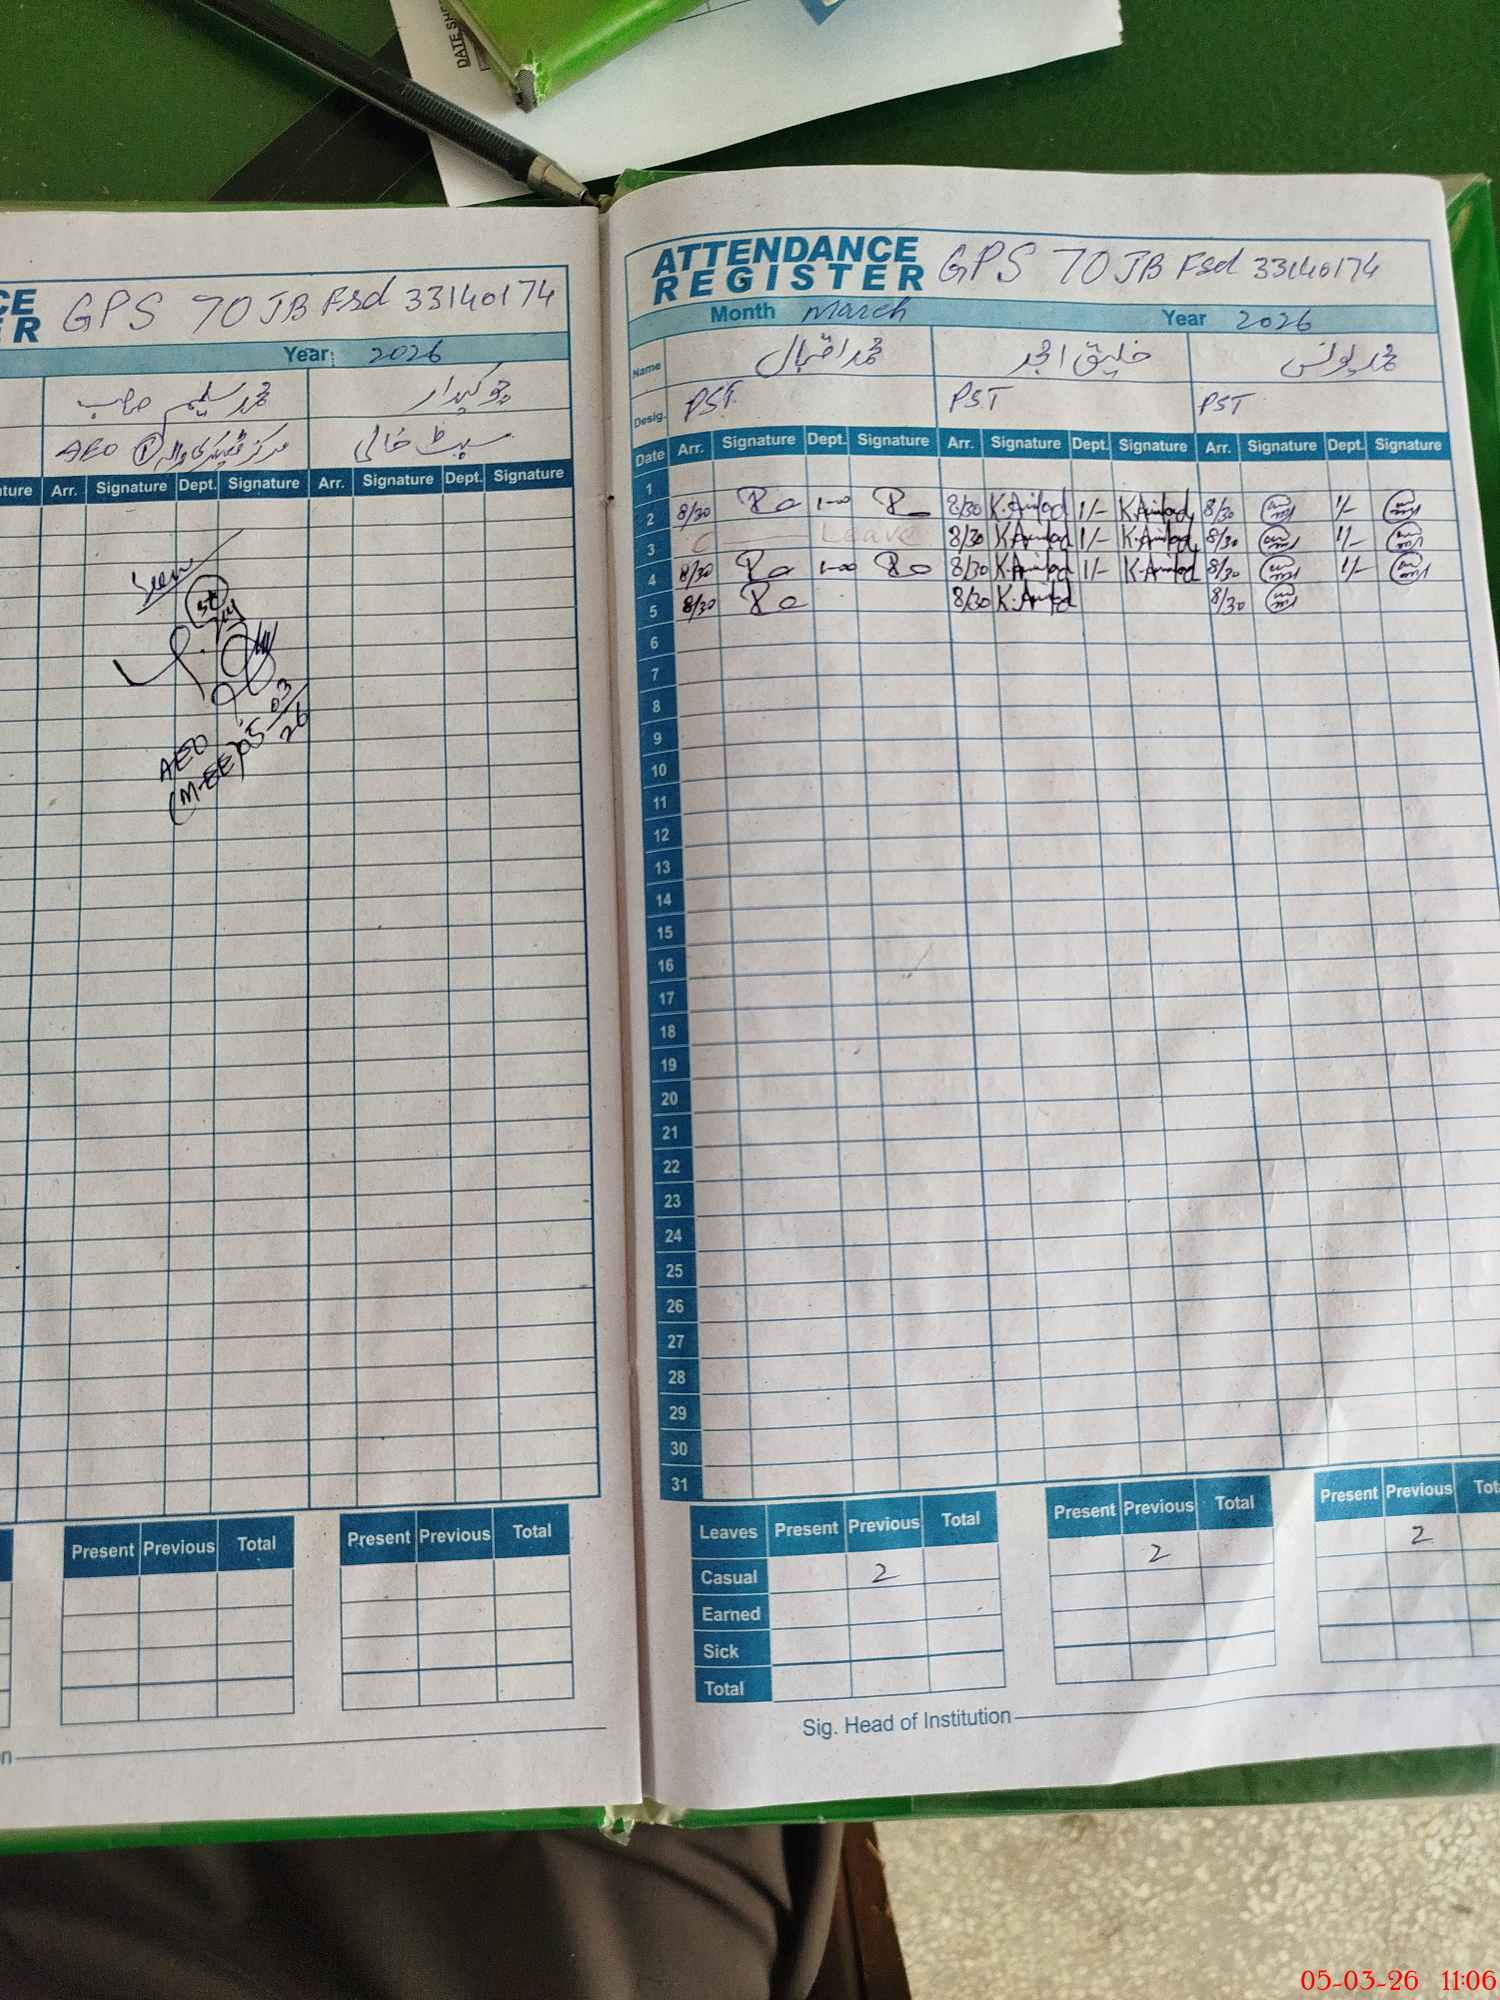 DATE SH
CE
ER GPS 70 JB Fsd 33140174
Year: 2026
محمد سلیم صاحب چوکیدار
AEO مرکز سیٹ خالی
ture Arr. Signature Dept. Signature Arr. Signature Dept. Signature
Seen
AEO
(M-EE) 05-03/26
Present Previous Total Present Previous Total
n
ATTENDANCE
REGISTER GPS 70 JB Fsd 33140174
Month March Year 2026
Name محمد اقبال خلیق امجد محمد یونس
Desig. PST PST PST
Date Arr. Signature Dept. Signature Arr. Signature Dept. Signature Arr. Signature Dept. Signature
1
2 8/30 1-00 8/30 K.Amjad 1/- K.Amjad 8/30 1/-
3 C Leave 8/30 K.Amjad 1/- K.Amjad 8/30 1/-
4 8/30 1-00 8/30 K.Amjad 1/- K.Amjad 8/30 1/-
5 8/30 8/30 K.Amjad 8/30
6
7
8
9
10
11
12
13
14
15
16
17
18
19
20
21
22
23
24
25
26
27
28
29
30
31
Leaves Present Previous Total Present Previous Total Present Previous Tot
Casual 2 2 2
Earned
Sick
Total
Sig. Head of Institution
05-03-26 11:06